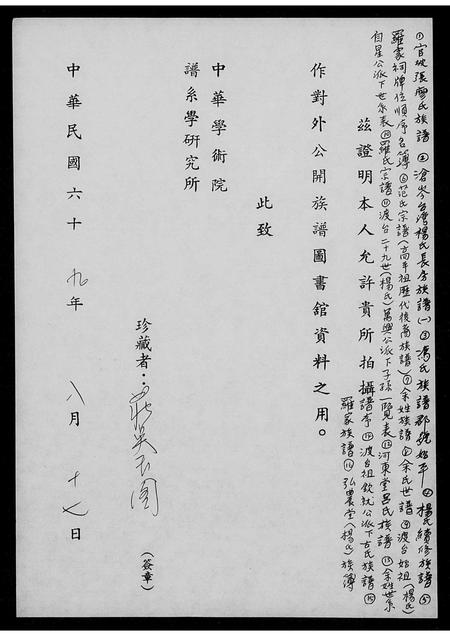 ①官坡張廖氏族譜 ②滄岑台灣楊氏長房族譜(一) ③馮氏族譜郡號始平 ④楊氏續修族譜 ⑤
羅家祠牌位順序名簿 ⑥范氏宗譜(高平祖歷代後裔族譜) ⑦余姓族譜 ⑧余氏世譜 ⑨渡台始祖(楊氏)
自星公派下世系表 ⑩羅氏宗譜 ⑪渡台二十九世(楊氏)萬興公派下子孫一覽表 ⑫河東堂呂氏族譜 ⑬余姓世系
茲證明本人允許貴所拍攝譜序 ⑭渡台祖欽就公派下古氏族譜 ⑮
羅家族譜 ⑯弘農堂(楊氏)族簿
作對外公開族譜圖書館資料之用。
此致
中華學術院
譜系學研究所
珍藏者：莊吳玉圖
(簽章)
中華民國六十九年八月十七日